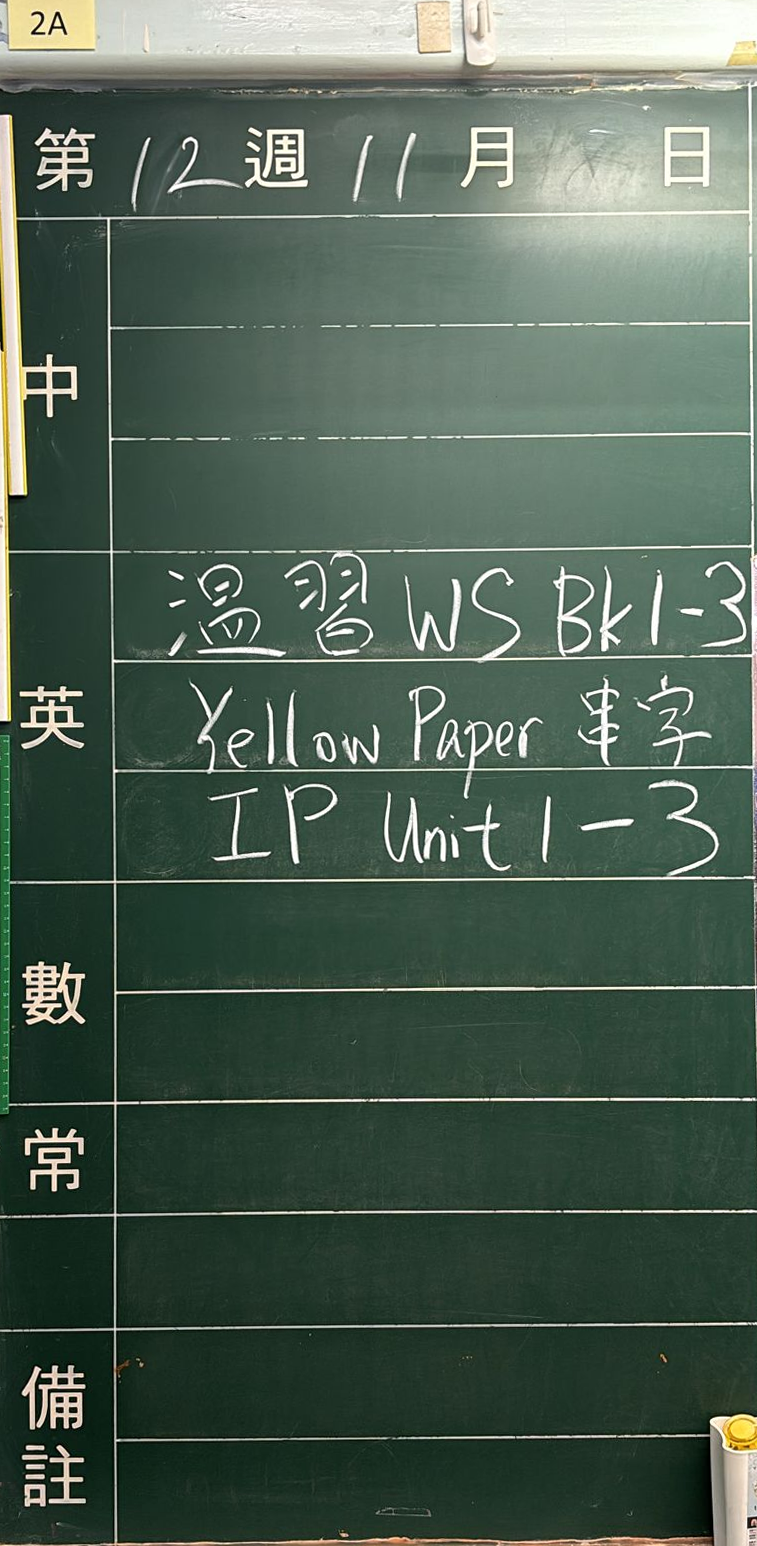 2A
第 12 週 11 月 日
中
温習 WS Bk 1-3
英
Yellow Paper 串字
IP Unit 1-3
數
常
備註